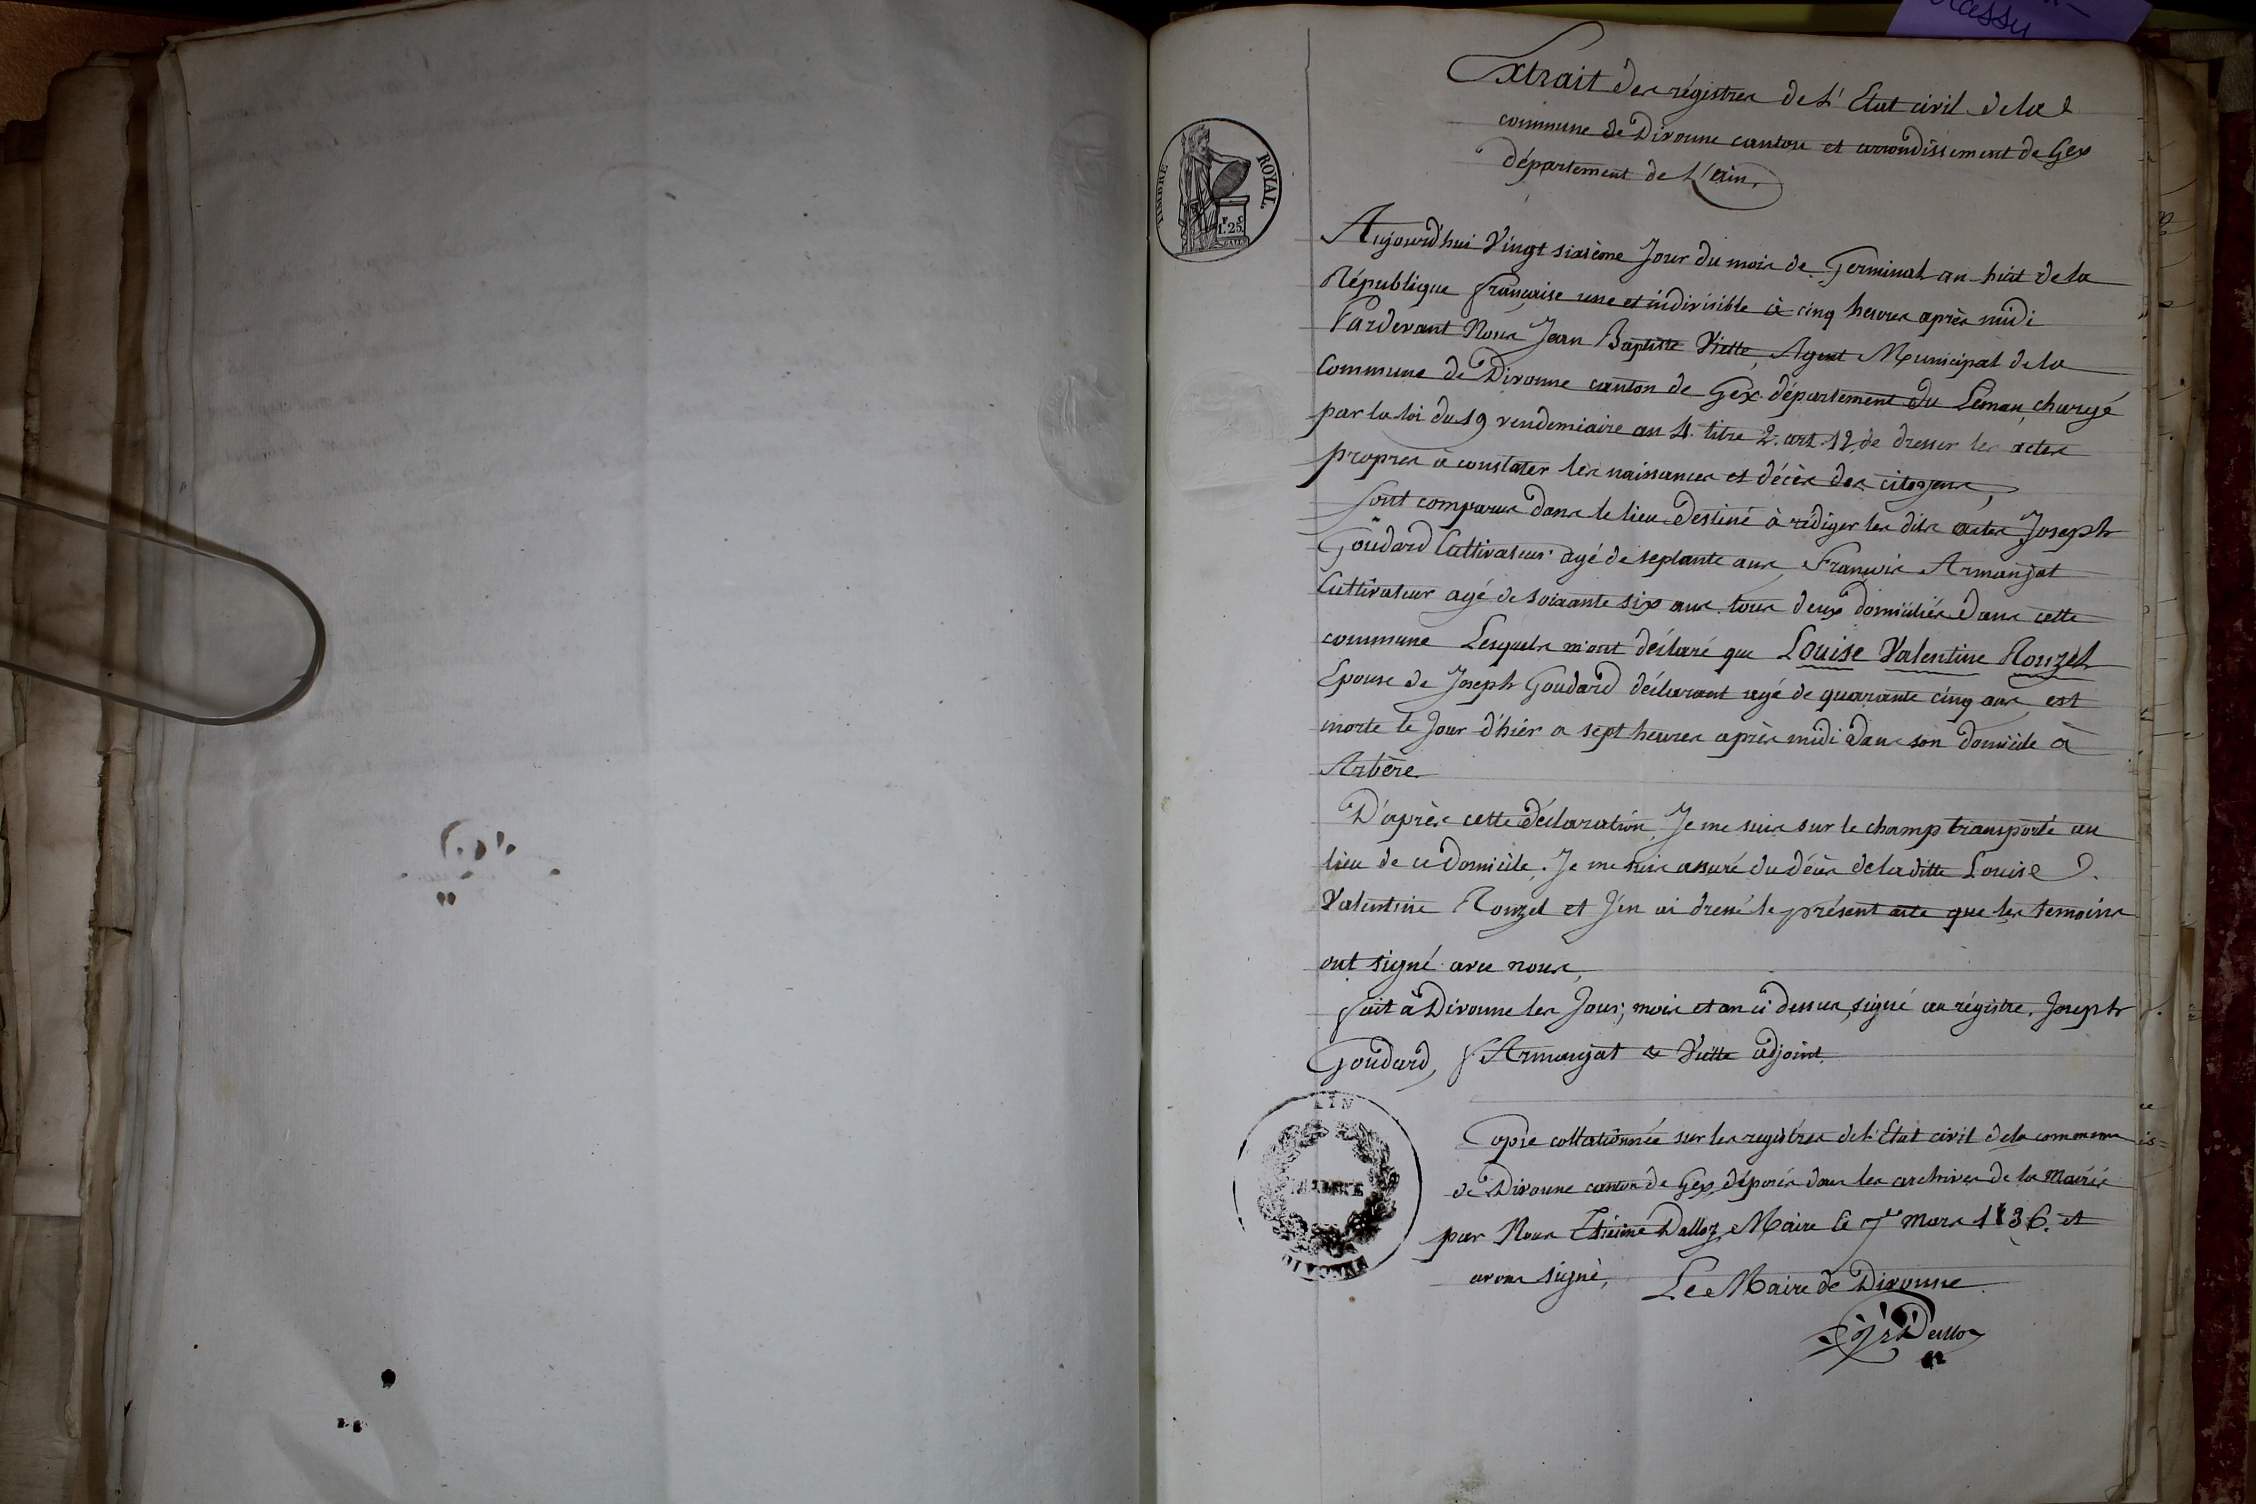 rassy
Extrait des régistres de L'Etat civil de la
commune de Divonne canton et arrondissement de Gex
département de L'ain,
TIMBRE ROYAL
F C
1.25
Aujourd'hui Vingt sixième Jour du mois de Germinal an huit de la
République française une et indivisible à cinq heures après midi
Pardevant Nous Jean Baptiste Viette, Agent Municipal de la
Commune de Divonne canton de Gex département du Leman, chargé
par la loi du 19 vendemiaire an 4. titre 2. art. 12, de dresser les actes
propres à constater les naissances et décès des citoyens,
Sont comparus dans le lieu destiné à rédiger les dits actes Joseph
Goudard Cultivateur agé de septante ans, François Armanjat
Cultivateur agé de soixante six ans tous deux domiciliés dans cette
commune Lesquels m'ont déclaré que Louise Valentine Rouzet
Epouse de Joseph Goudard déclarant agé de quarante cinq ans, est
morte le Jour d'hièr a sept heures après midi dans son domicile à
Arbère
D'après cette déclaration, Je me suis sur le champ transporté au
lieu de ce domicile. Je me suis assuré du décès de la ditte Louise
Valentine Rouzet et J'en ai dressé le présent acte que les temoins
ont signé avec nous,
fait à Divonne les Jour, mois et an ci dessus, signé au régistre. Joseph
Goudard, f Armanjat & Viette adjoint.
AIN
MAIRIE
DIVONNE
Copie collationnée sur les registres de l'Etat civil de la commune
de Divonne canton de Gex déposés dans les archives de la Mairie
par Nous Etienne Dalloz, Maire le 7 mars 1836. et
avons signé,
Le Maire de Divonne
Dalloz